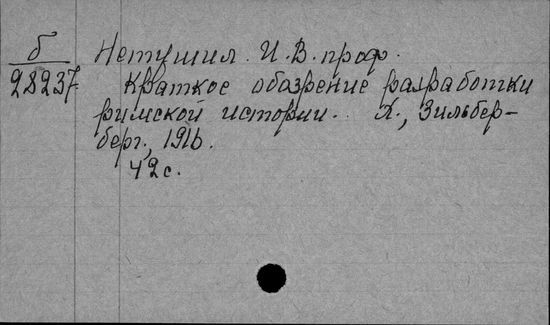 б Нетушил. И. В. проф.
28237. Краткое обозрение разработки
римской истории. Х., Зильбер-
берг, 1916.
42 с.